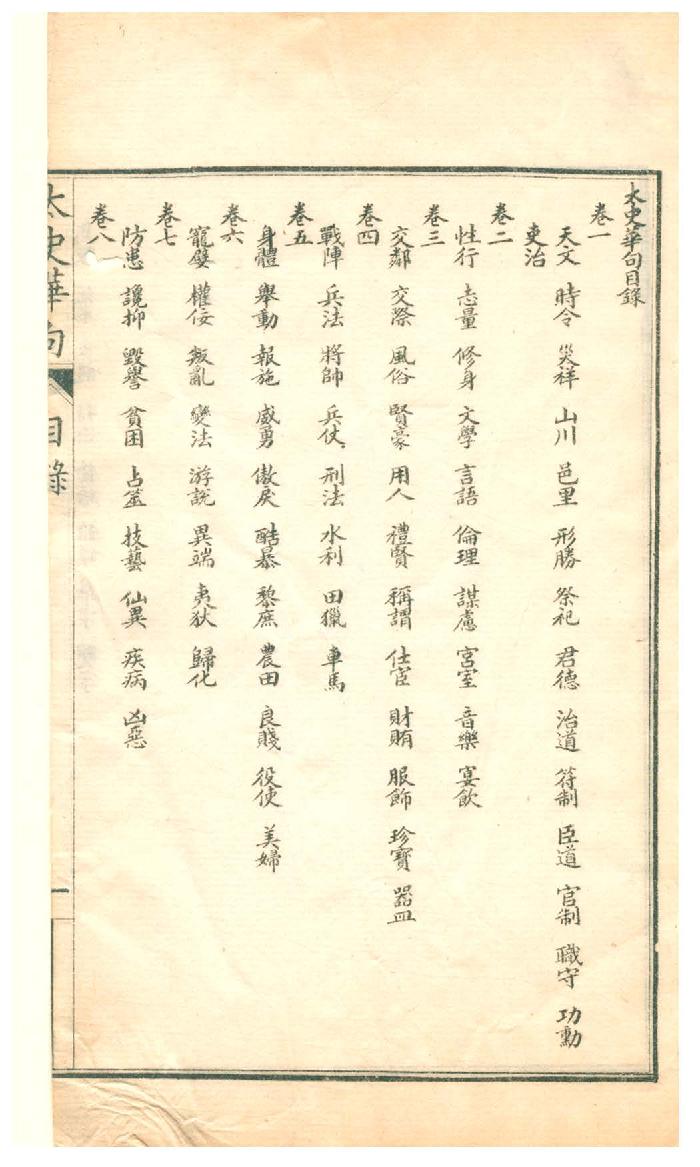 太史華句目錄
卷一
天文 時令 災祥 山川 邑里 形勝 祭祀 君德 治道 符制 臣道 官制 職守 功勳
吏治
卷二
性行 志量 修身 文學 言語 倫理 謀慮 宮室 音樂 宴飲
卷三
交鄰 交際 風俗 賢豪 用人 禮賢 稱謂 仕宦 財賄 服飾 珍寶 器皿
卷四
戰陣 兵法 將帥 兵仗 刑法 水利 田獵 車馬
卷五
身體 舉動 報施 威勇 傲戾 酷暴 黎庶 農田 良賤 役使 美婦
卷六
寵嬖 權佞 叛亂 變法 游說 異端 夷狄 歸化
卷七
防患 讒抑 毀譽 貧困 占筮 技藝 仙異 疾病 凶惡
卷八
太史華句 目錄 一